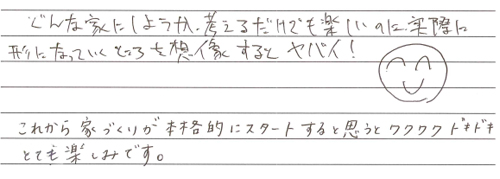 どんな家にしようか、考えるだけでも楽しいのに、実際に
形になっていくところを想像するとヤバイ!
これから家づくりが本格的にスタートすると思うとワクワクドキドキ
とても楽しみです。